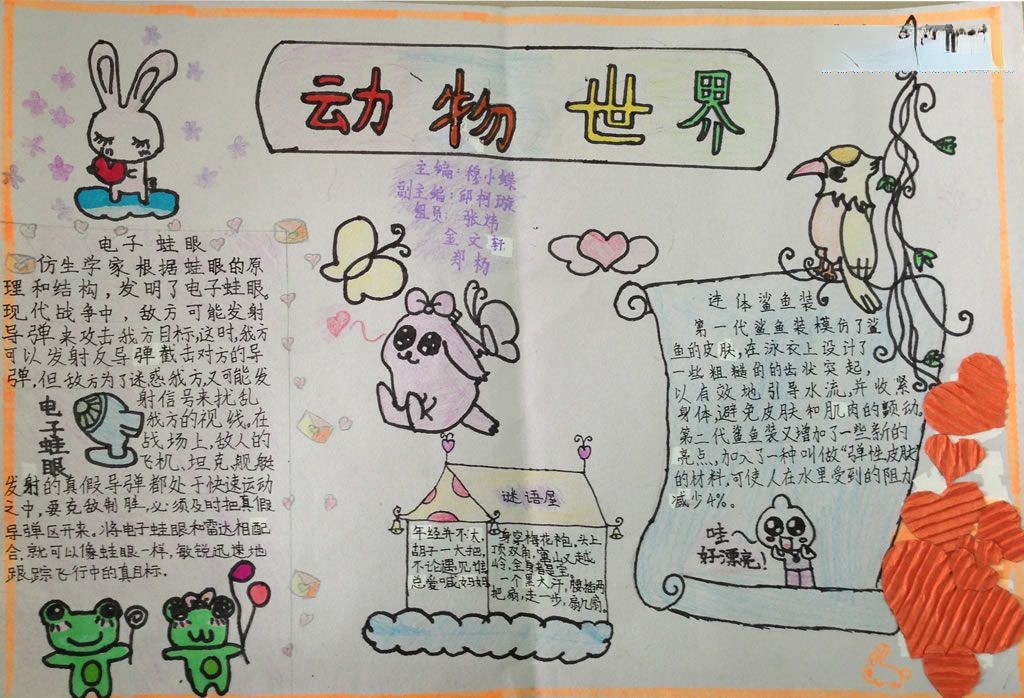 动物世界
主编:穆小蝶
副主编:邱柯璇
组员 张炜
金文轩
郑杨
电子蛙眼
仿生学家根据蛙眼的原
理和结构,发明了电子蛙眼。
现代战争中,敌方可能发射
导弹来攻击我方目标,这时,我方
可以发射反导弹截击对方的导
弹,但敌方为了迷惑我方,又可能发
射信号来扰乱
我方的视线。在
战场上,敌人的
飞机、坦克,舰艇
发射的真假导弹都处于快速运动
之中,要克敌制胜,必须及时把真假
导弹区开来。将电子蛙眼和雷达相配
合,就可以像蛙眼一样,敏锐迅速地
跟踪飞行中的真目标.
电子蛙眼
谜语屋
年经并不大,
胡子一大把,
不论遇见谁
总爱喊妈妈
身穿梅花袍,头上
顶双角,窜山又越
岭,全身都是宝。
一个黑大汗,腰插两
把扇,走一步,扇几扇。
连体鲨鱼装
第一代鲨鱼装模仿了鲨
鱼的皮肤,在泳衣上设计了
一些粗糙的齿状突起,
以有效地引导水流,并收紧
身体,避免皮肤和肌肉的颤动。
第二代鲨鱼装又增加了一些新的
亮点,加入了一种叫做“弹性皮肤”
的材料,可使人在水里受到的阻力
减少4%。
哇~
好漂亮!